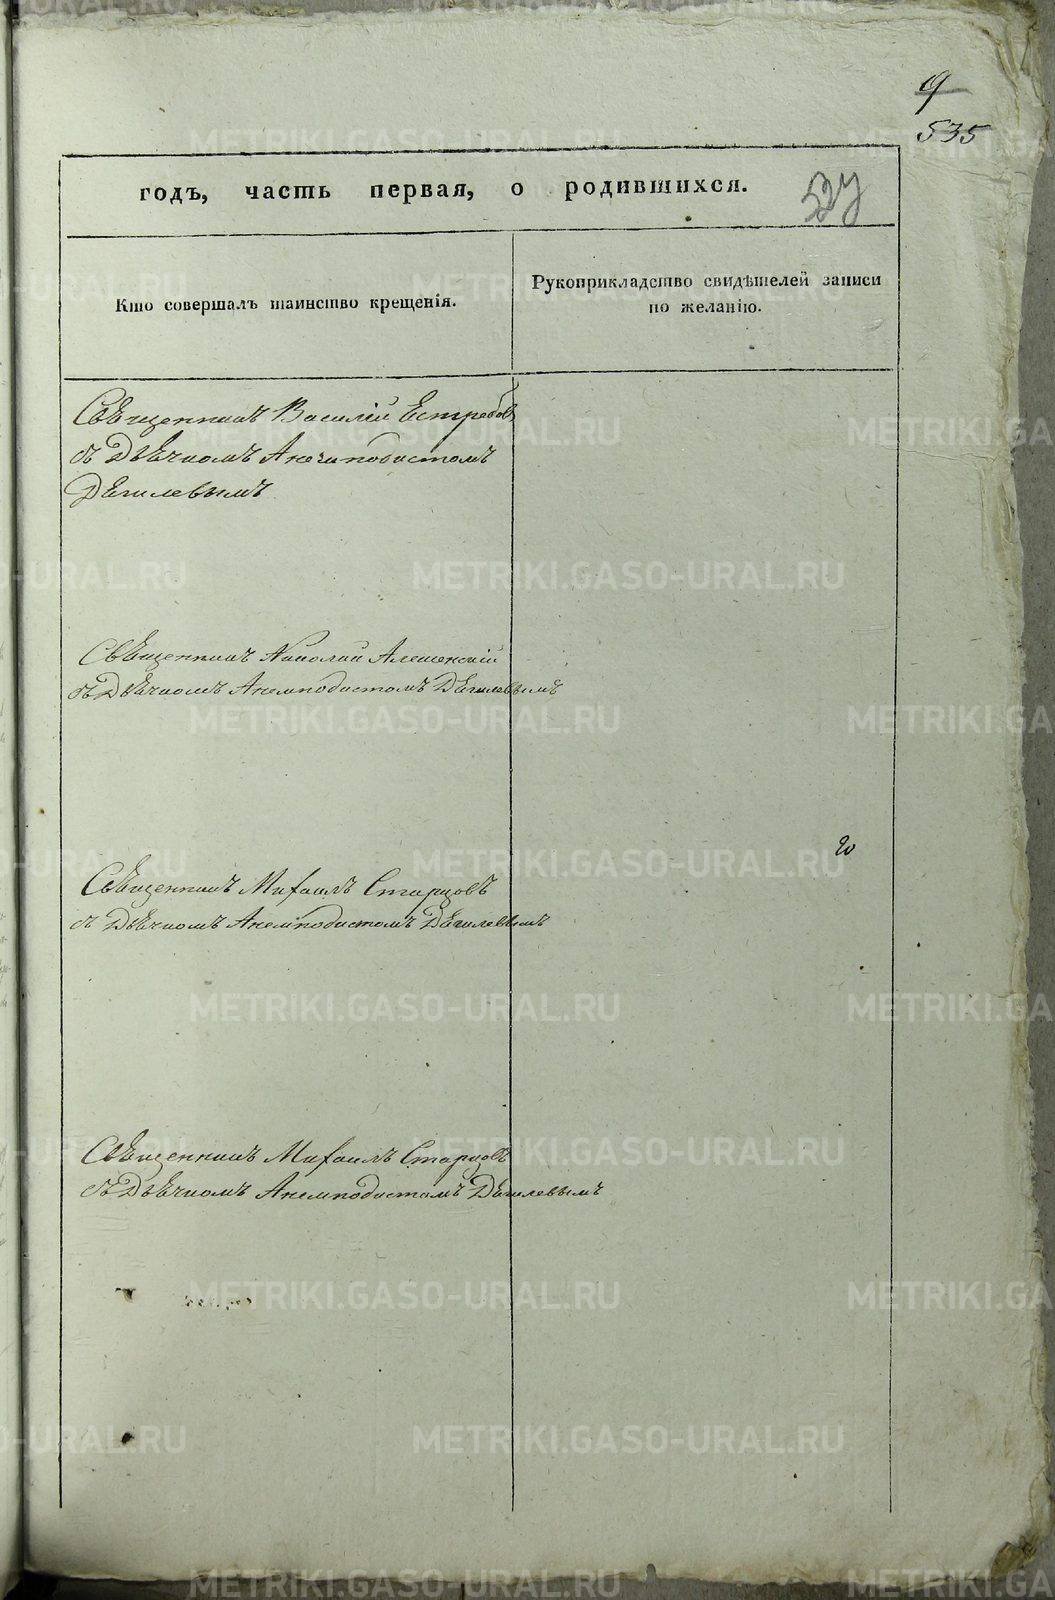 9
535
годъ, часть первая, о родившихся.
Кто совершалъ таинство крещенія.
Рукоприкладство свидѣтелей записи
по желанію.
Священникъ Василій Естребов
съ Дьячкомъ
Дягилевымъ
Священникъ Николай
съ Дьячкомъ Анемподистомъ Дягилевымъ
Священникъ Михаилъ Старцовъ
съ Дьячкомъ Анемподистомъ Дягилевымъ
Священникъ Михаилъ Старцовъ
съ Дьячкомъ Анемподистомъ Дягилевымъ
METRIKI.GASO-URAL.RU